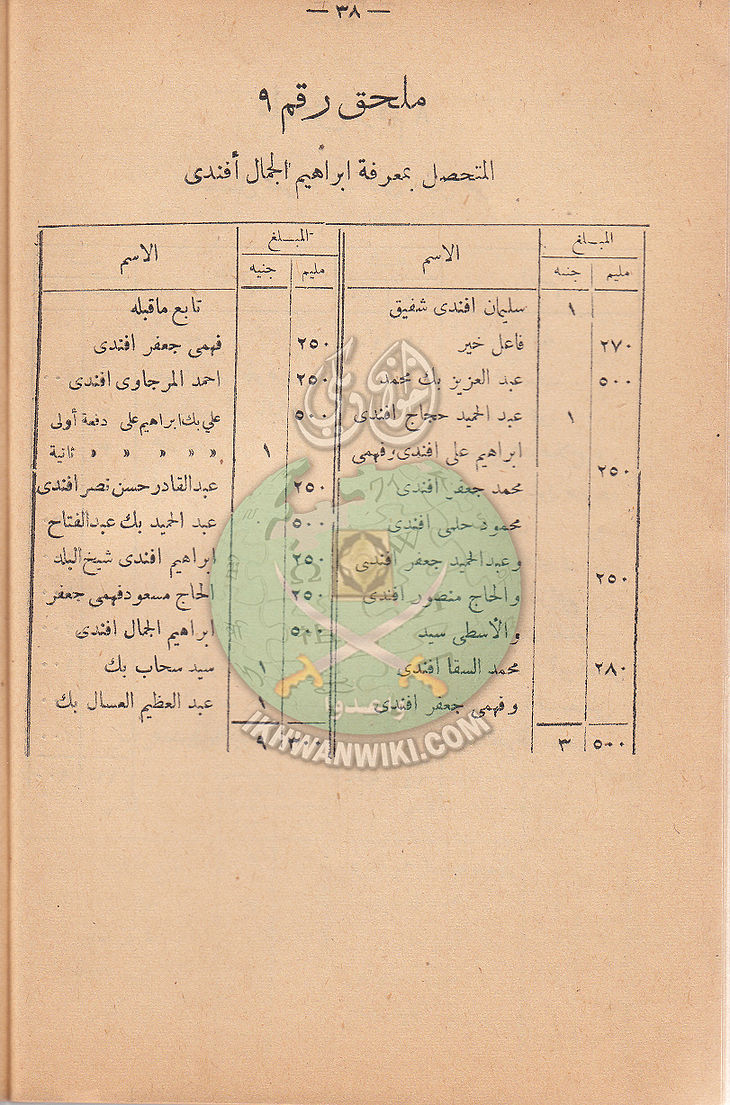 — ٣٨ —
ملحق رقم ٩
المتحصل بمعرفة ابراهيم الجمال أفندى
المبلغ الاسم
مليم جنيه
١ سليمان افندى شفيق
٢٧٠ فاعل خير
٥٠٠ عبد العزيز بك محمد
١ عبد الحميد حجاج افندى
ابراهيم على افندى وفهمى
٢٥٠
محمد جعفر افندى
محمود حلمى افندى
وعبد الحميد جعفر افندى
٢٥٠
والحاج منصور افندى
والأسطى سيد
٢٨٠ محمد السقا افندى
وفهمى جعفر افندى
٥٠٠ ٣
المبلغ الاسم
مليم جنيه
تابع ماقبله
٢٥٠ فهمى جعفر افندى
٢٥٠ احمد المرجاوى افندى
٥٠٠ على بك ابراهيم على دفعة أولى
١ » » » » ثانية
٢٥٠ عبد القادر حسن نصر افندى
٥٠٠ عبد الحميد بك عبد الفتاح
٢٥٠ ابراهيم افندى شيخ البلد
٢٥٠ الحاج مسعود فهمى جعفر
٥٠٠ ابراهيم الجمال افندى
١ سيد سحاب بك
١ عبد العظيم العسال بك
٩
وأعدوا
IKHWANWIKI.COM